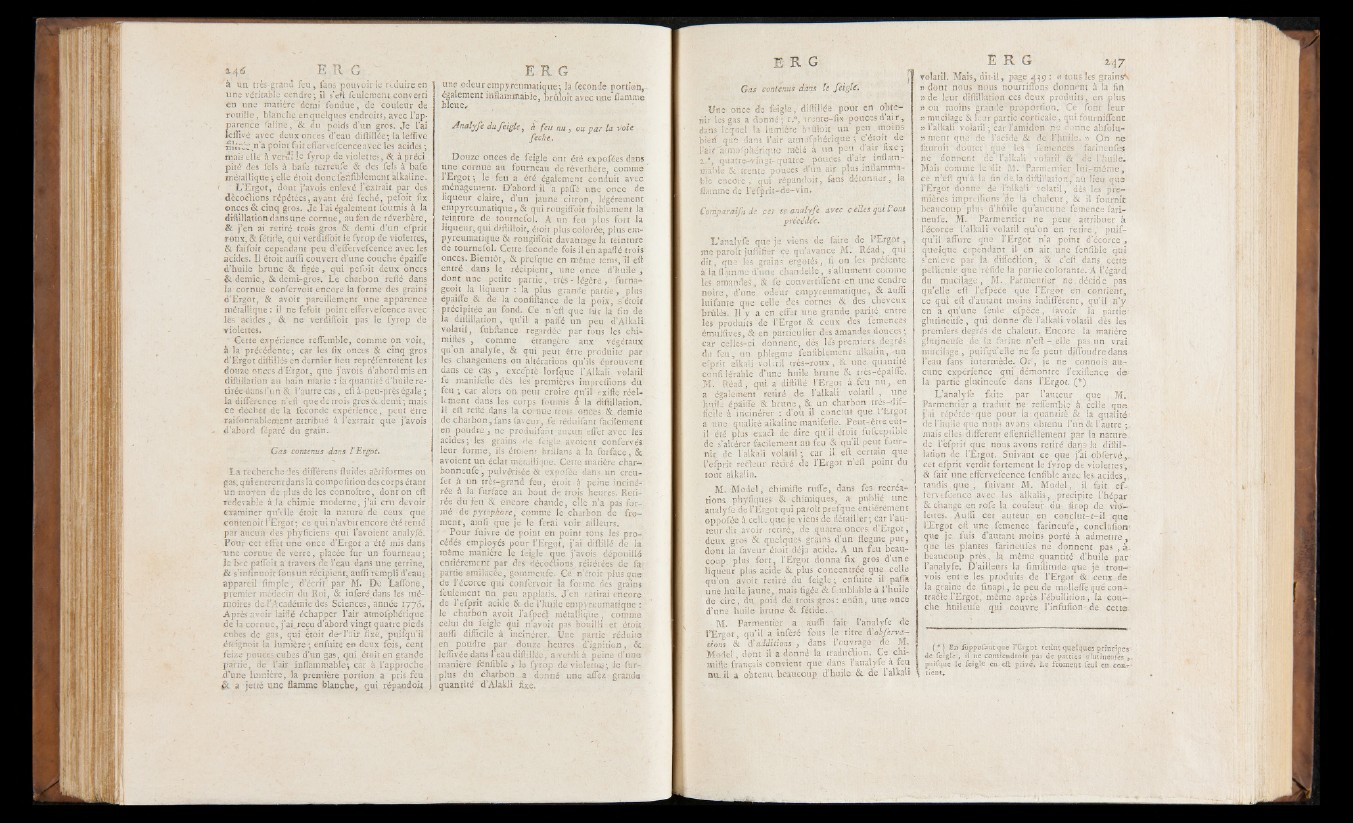 246 E R G
à un très-grand feu, sans pouvoir le réduire en
une véritable cendre; il s'est seulement converti
en une matière demi fondue, de couleur de
rouille, blanche en quelques endroits, avec l'ap-
parence saline, & du poids d'un gros. Je l'ai
lessivé avec deux onces d'eau distillée; la lessive
n'a point fait effervescence avec les acides;
mais elle a verdi le syrop de violettes, & a préci-
pité des sels à base terreuse & des sels à base
métallique; elle étoit donc sensiblement alkaline.
L'Ergot, dont j'avois enlevé l'extrait par des
décoctions répétées, ayant été séché, pesoit six
onces & cinq gros. Je l'ai également soumis à la
distillation dans une cornue, au feu de réverbère,
& j'en ai retiré trois gros & demi d'un esprit
roux, & fétide, qui verdissoit le syrop de violettes,
& faisoit cependant peu d'effervescence avec les
acides. Il étoit aussi couvert d'une couche épaisse
d'huile brune & figée, qui pesoit deux onces
& demie, & demi-gros. Le charbon resté dans
la cornue conservoit encore la forme des grains
d'Ergot, & avoit pareillement une apparence
métallique: il ne fesoit point effervescence avec
les acides, & ne verdissoit pas le syrop de
violettes.
Cette expérience ressemble, comme on voit,
à la précédente; car les six onces & cinq gros
d'Ergot distillés en dernier lieu représentoient les
douze onces d'Ergot, que j'avois d'abord mis en
distillation au bain marie: la quantité d'huile re-
tirée dans l'un & l'autre cas, est à-peu-près égale;
la différence n'est que de trois gros & demi; mais
ce déchet de la seconde expérience, peut être
raisonnablement attribué à l'extrait que j'avois
d'abord séparé du grain.
Gas contenus dans l'Ergot.
La recherche des différens fluides aériformes ou
gas, qui entrent dans la composition des corps étant
un moyen de plus de les connoître, dont on est
redevable à la chimie moderne, j'ai cru devoir
examiner qu'elle étoit la nature de ceux que
contenoit l'Ergot; ce qui n'avoit encore été tenté
par aucun des physiciens qui l'avoient analysé.
Pour cet effet une once d'Ergot a été mis dans
une cornue de verre, placée sur un fourneau;
le bec passoit à travers de l'eau dans une terrine,
& s'insinuoit sous un récipient, aussi rempli d'eau;
appareil simple, décrit par M. De Lassone,
premier médecin du Roi, & inséré dans les mé-
moires de l'Académie des Sciences, année 1776.
Après avoir laissé échapper l'air atmosphérique
de la cornue, j'ai reçu d'abord vingt quatre pieds
cubes de gas, qui étoit de l'air fixé, puisqu'il
éteignoit la lumière; ensuite en deux fois, cent
seize pouces-cubes d'un gas, qui étoit en grande
partie, de l'air inflammable; car à l'approche
d'une lumière, la première portion a pris feu
& a jetté une flamme blanche, qui répandoit
E R G
une odeur empyreumatique; la seconde portion,
également inflammable, brûloit avec une flamme
bleue.
Analyse du seigle, à feu nu, ou par la voie
seche.
Douze onces de seigle ont été exposées dans
une cornue au fourneau de réverbère, comme
l'Ergot; le feu a été également conduit avec
ménagement. D'abord il a passé une once de
liqueur claire, d'un jaune citron, légèrement
empyreumatique, & qui rougissoit foiblement la
teinture de tournesol. A un feu plus fort la
liqueur, qui distilloit, étoit plus colorée, plus em-
pyreumatique & rougissoit davantage la teinture
de tournesol. Cette seconde fois il en a passé trois
onces. Bientôt, & presque en même tems, il est
entré dans le récipient, une once d'huile,
dont une petite partie, très-légère, surna-
geoit la liqueur: la plus grande partie, plus
épaisse & de la consistance de la poix, s'étoit
précipitée au fond. Ce n'est que sur la fin de
la distillation, qu'il a passé un peu d'Alkali
volatil, substance regardée par tous les chi-
mistes, comme étrangère aux végétaux
qu'on analyse, & qui peut être produite par
les changemens ou altérations qu'ils éprouvent
dans ce cas, excepté lorsque l'Alkali volatil
se manifeste dès les premières impressions du
feu; car alors on peut croire qu'il existe réel-
lement dans les corps soumis à la distillation.
Il est resté dans la cornue trois onces & demie
de charbon, sans saveur, se réduisant facilement
en poudre, ne produisant aucun effet avec les
acides; les grains de seigle avoient conservés
leur forme, ils étoient brillans à la surface, &
avoient un éclat métallique. Cette matière char-
bonneuse, pulvérisée & exposée dans un creu-
set à un très-grand feu, étoit à peine inciné-
rée à la surface au bout de trois heures. Reti-
rée du feu & encore chaude, elle n'a pas for-
mé de pyrophore, comme le charbon de fro-
ment, ainsi que je le ferai voir ailleurs.
Pour suivre de point en point tous les pro-
cédés employés pour l'Ergot, j'ai distillé de la
même manière le seigle que j'avois dépouillé
entièrement par des décoctions réitérées de sa
partie émilacée, gommeuse. Ce n'étoit plus que
de l'écorce qui conservoit la forme des grains
seulement un peu applatis. J'en retirai encore
de l'esprit acide & de l'huile empyreumatique:
le charbon avoit l'aspect métallique, comme
celui du seigle qui n'avoit pas bouilli et étoit
aussi difficile à incinérer. Une partie réduite
en poudre par douze heures d'ignition, &
lessivée dans l'eau distillée, a verdi à peine d'une
manière sensible, le syrop de violette; le sur-
plus du charbon a donné une assez grande
quantité d'Alkali fixe.
E R G
Gas contenus dans le seigle.
Une once de seigle, distillée pour en obte-
nir les gas a donné; 1.°, trente-six pouces d'air,
dans lequel la lumière brûloit un peu moins
bien que dans l'air atmosphérique; c'étoit de
l'air atmosphérique mêlé à un peu d'air fixe;
2.°, quatre-vingt-quatre pouces d'air inflam-
mable & trente pouces d'un air plus inflamma-
ble encore, qui répandoit, sans détonner, la
flamme de l'esprit-de-vin.
Comparaison de ces analyse avec celles qui l'ont
précédée.
L'analyse que je viens de faire de l'Ergot,
me paroît justifier ce qu'avance M. Réad, qui
dit, que les grains ergotés, si on les présente
à la flamme d'une chandelle, s'allument comme
les amandes, & se convertissent en une cendre
noire, d'une odeur empyreumatique, & aussi
luisante que celle des cornes & des cheveux
brûlés. Il y a en effet une grande parité entre
les produits de l'Ergot & ceux des semences
émulsives, & en particulier des amandes douces;
car celles-ci donnent, dès les premiers degrés
du feu, un phlegme sensiblement alkalin, un
esprit alkali volatil très-roux, & une quantité
considérable d'une huile brune & très-épaisse.
M. Réad, qui a distillé l'Ergot à feu nu, en
a également retiré de l'alkali volatil, une
huile épaisse & brune, & un charbon très-dif-
ficile à incinérer: d'où il conclut que l'Ergot
a une qualité alkaline manifeste. Peut-être eût-
il été plus exact de dire qu'il étoit susceptible
de s'altérer facilement au feu & qu'il peut four-
nir de l'alkali volatil; car il est certain que
l'esprit recteur retiré de l'Ergot n'est point du
tout alkalin.
M. Model, chimiste russe, dans ses recréa-
tions physiques & chimiques, a publié une
analyse de l'Ergot qui paroît presque entièrement
opposée à celle que je viens de détailler; car l'au-
teur dit avoir retiré, de quatre onces d'Ergot,
deux gros & quelques grains d'un flegme pur,
dont la saveur étoit déjà acide. A un feu beau-
coup plus fort, l'Ergot donna six gros d'une
liqueur plus acide & plus concentrée que celle
qu'on avoit retiré du seigle; ensuite il passa
une huile jaune, mais figée & semblable à l'huile
de cire, du poids de trois gros: enfin, une once
d'une huile brune & fétide.
M. Parmentier a aussi fait l'analyse de
l'Ergot, qu'il a inséré sous le titre d'observa-
tions & d'additions, dans l'ouvrage de M.
Model, dont il a donné la traduction. Ce chi-
miste français convient que dans l'analyse à feu
nu, il a obtenu beaucoup d'huile & de l'alkali
E R G 247
volatil. Mais, dit-il, page 449: « tous les grains
» dont nous nous nourrissons donnent à la fin
» de leur distillation ces deux produits, en plus
» ou moins grande proportion. Ce sont leur
» mucilage & leur partie corticale, qui fournissent
» l'alkali volatil; car l'amidon ne donne absolu-
» ment que de l'acide & de l'huile. » On ne
sauroit douter que les semences farineuses
ne donnent de l'alkali volatil & de l'huile.
Mais comme le dit M. Parmentier lui-même,
ce n'est qu'à la fin de la distillation, au lieu que
l'Ergot donne de l'alkali volatil, dès les pre-
mières impressions de la chaleur, & il fournit
beaucoup plus d'huile qu'aucune semence fari-
neuse. M. Parmentier ne peut attribuer à
l'écorce l'alkali volatil qu'on en retire, puis-
qu'il assure que l'Ergot n'a point d'écorce,
quoique cependant il en ait une sensible qui
s'enlève par la dissection, & c'est dans cette
pellicule que réside la partie colorante. A l'égard
du mucilage, M. Parmentier ne décide pas
qu'elle est l'espèce que l'Ergot en contient,
ce qui est d'autant moins indifférent, qu'il n'y
en a qu'une seule espèce, savoir la partie
glutineuse, qui donne de l'alkali volatil dès les
premiers degrés de chaleur. Encore la matière
glutineuse de la farine n'est-elle pas un vrai
mucilage, puisqu'elle ne se peut dissoudre dans
l'eau sans intermède. Or, je ne connois au-
cune expérience qui démontre l'existence de
la partie glutineuse dans l'Ergot. (*)
L'analyse faite par l'auteur que M.
Parmentier a traduit ne ressemble à celle que
j'ai répétée que pour la quantité & la qualité
de l'huile que nous avons obtenu l'un & l'autre;
mais elles diffèrent essentiellement par la nature
de l'esprit que nous avons retiré dans la distil-
lation de l'Ergot. Suivant ce que j'ai observé,
cet esprit verdit fortement le syrop de violettes,
& fait une effervescence sensible avec les acides,
tandis que, suivant M. Model, il fait ef-
fervescence avec les alkalis, précipite l'hépar
& change en rose la couleur du sirop de vio-
lettes. Aussi cet auteur en conclut-t-il que
l'Ergot est une semence farineuse, conclusion
que je suis d'autant moins porté à admettre,
que les plantes farineuses ne donnent pas, à
beaucoup près, la même quantité d'huile par
l'analyse. D'ailleurs la similitude que je trou-
vois entre les produits de l'Ergot & ceux de
la graine de sinapi, le peu de mollesse que con-
tracte l'Ergot, même après l'ébulition, la cou-
che huileuse qui couvre l'infusion de cette
(*) En supposant que l'Ergot retînt quelques principes
de seigle, il ne contiendroit pas de parties glutineuses,
puisque le seigle en est privé. Le froment seul en con-
tient.